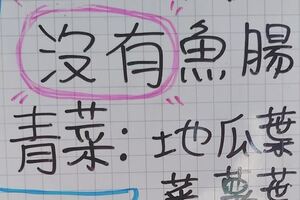 沒有魚腸
青菜：地瓜葉
菜
葉